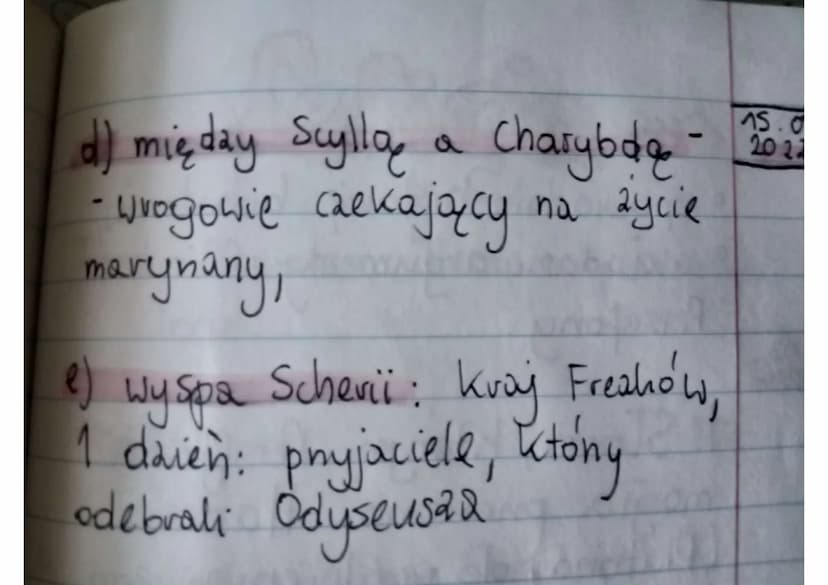 d) między Scyllą a Charybdą -
15.0
2022
- wrogowie czekający na życie
marynarzy,
e) wyspa Scherii: kraj Freaków,
1 dzień: przyjaciele, którzy
odebrali Odyseusza